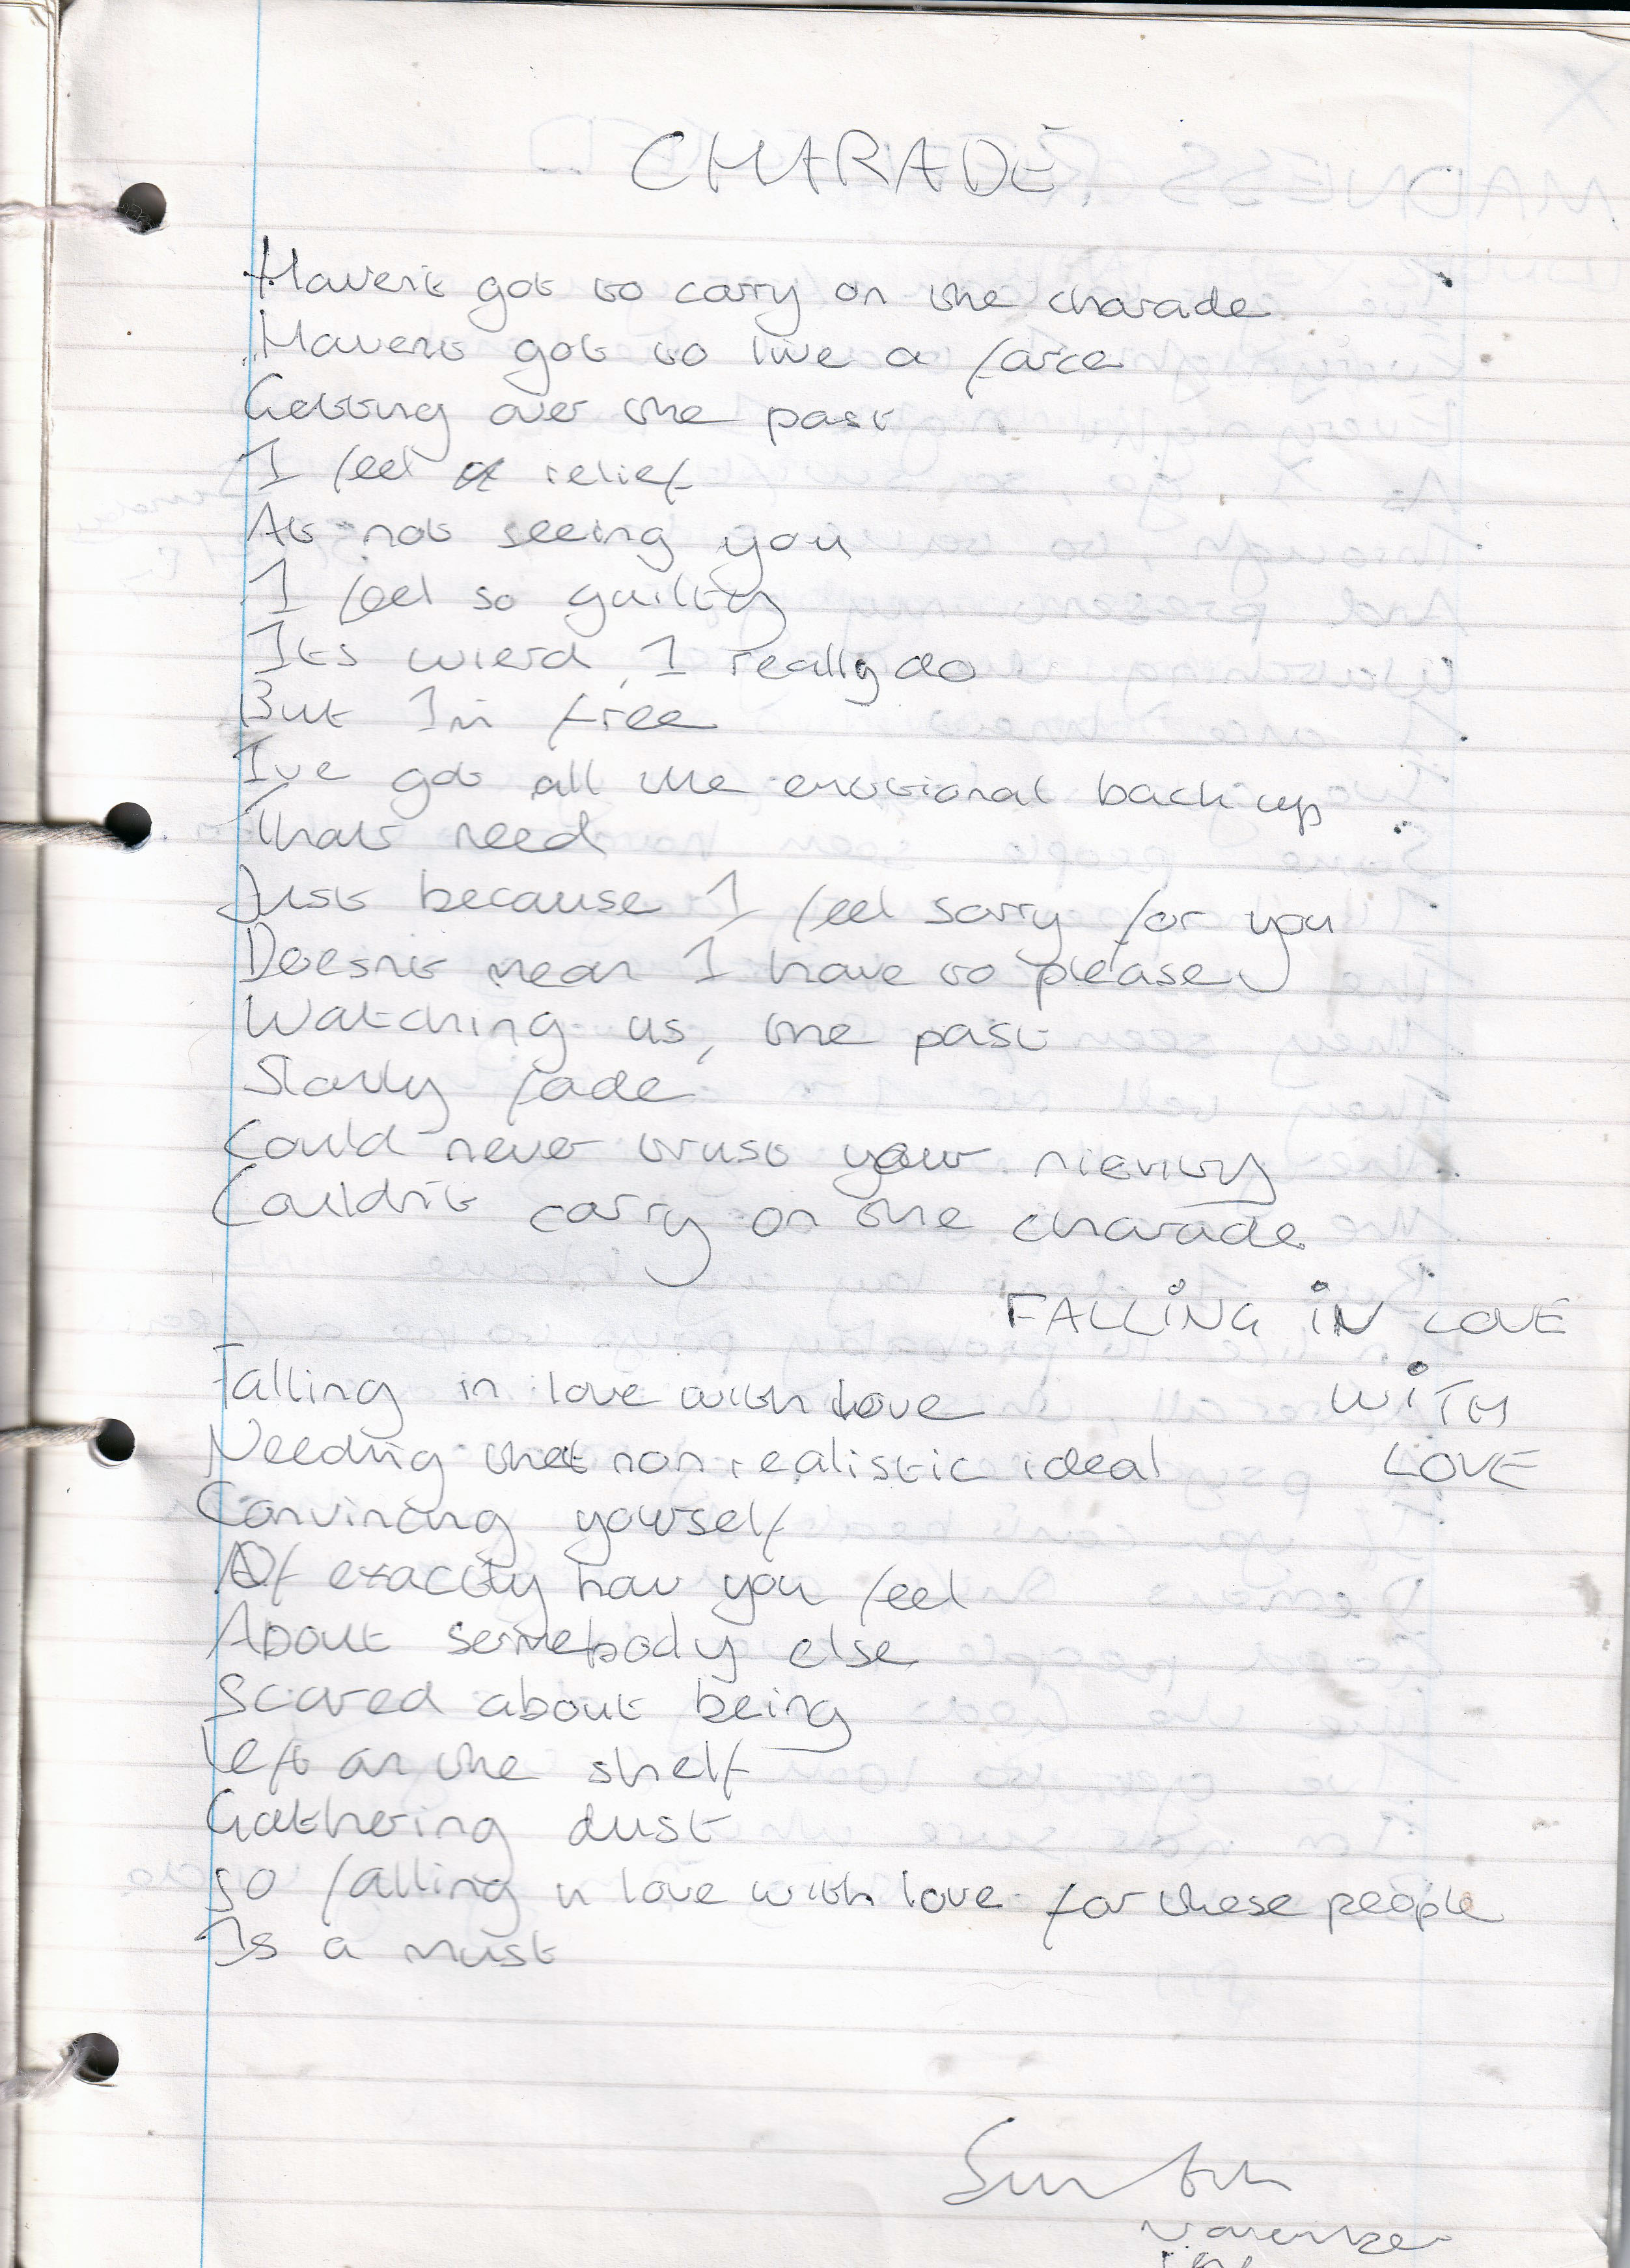 CHARADE
Haven't got to carry on the charade
Havent got to live a farce
Getting over the past
I feel a relief
At not seeing you
I feel so guilty
Its wierd, I really do
But Im free
I've got all the emotional back up
Thats need
Just because I feel sorry for you
Doesn't mean I have to please
Watching us, the past
Slowly fade
Could never trust your
Couldn't carry on the charade
FALLING IN LOVE
WITH
LOVE
Falling in love with love
Needing that non realistic ideal
Convincing yourself
Of exactly how you feel
About somebody else
Scared about being
left on the shelf
Gathering dust
So falling in love with love for these people
Is a must
November